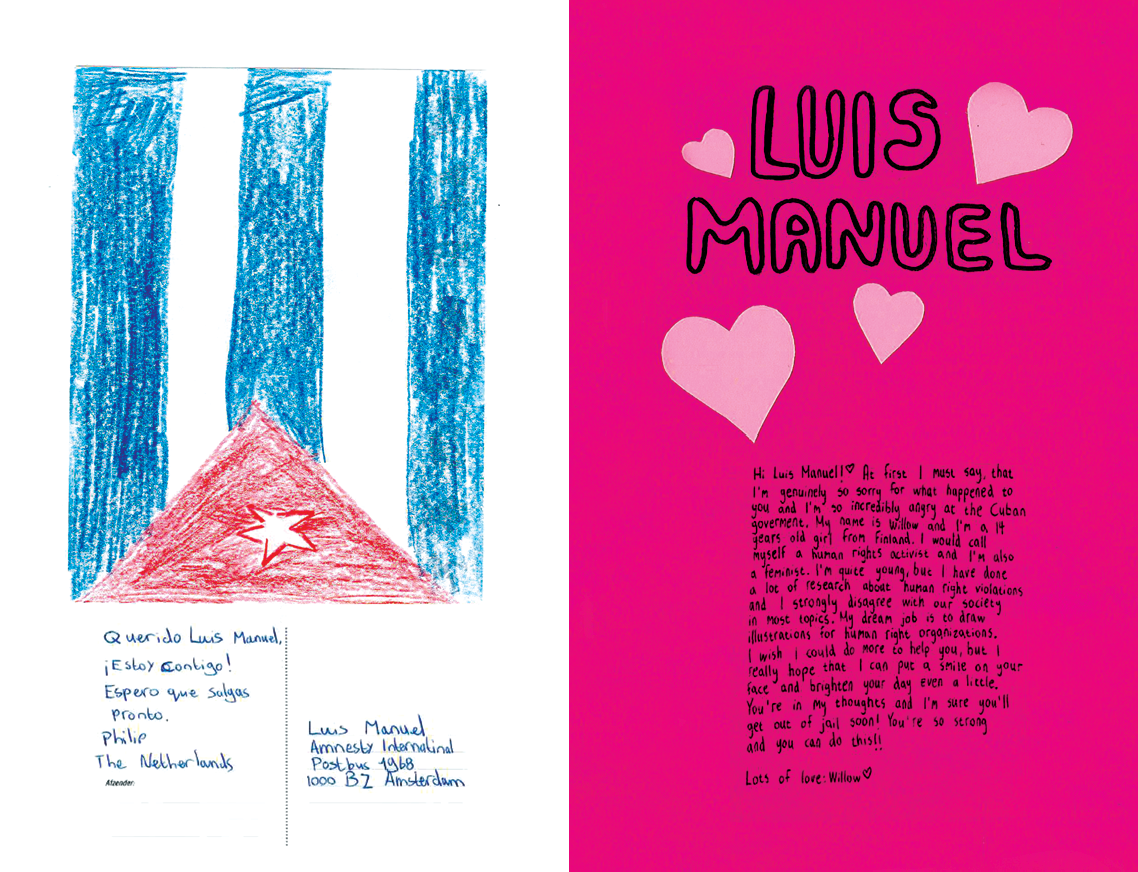 Querido Luis Manuel,
¡Estoy Contigo!
Espero que salgas
Pronto.
Philip
The Netherlands
Afzender:
Luis Manuel
Amnesty Internatinal
Postbus 1968
1000 BZ Amsterdam
LUIS
MANUEL
Hi Luis Manuel!♡ At first I must say, that
I'm genuinely so sorry for what happened to
you and I'm so incredibly angry at the Cuban
goverment. My name is Willow and I'm a 14
years old girl from Finland. I would call
myself a human rights activist and I'm also
a feminist. I'm quite young, but I have done
a lot of research about human right violations
and I strongly disagree with our society
in most topics. My dream job is to draw
illustrations for human right organizations.
I wish I could do more to help you, but I
really hope that I can put a smile on your
face and brighten your day even a little.
You're in my thoughts and I'm sure you'll
get out of jail soon! You're so strong
and you can do this!!
Lots of love: Willow♡